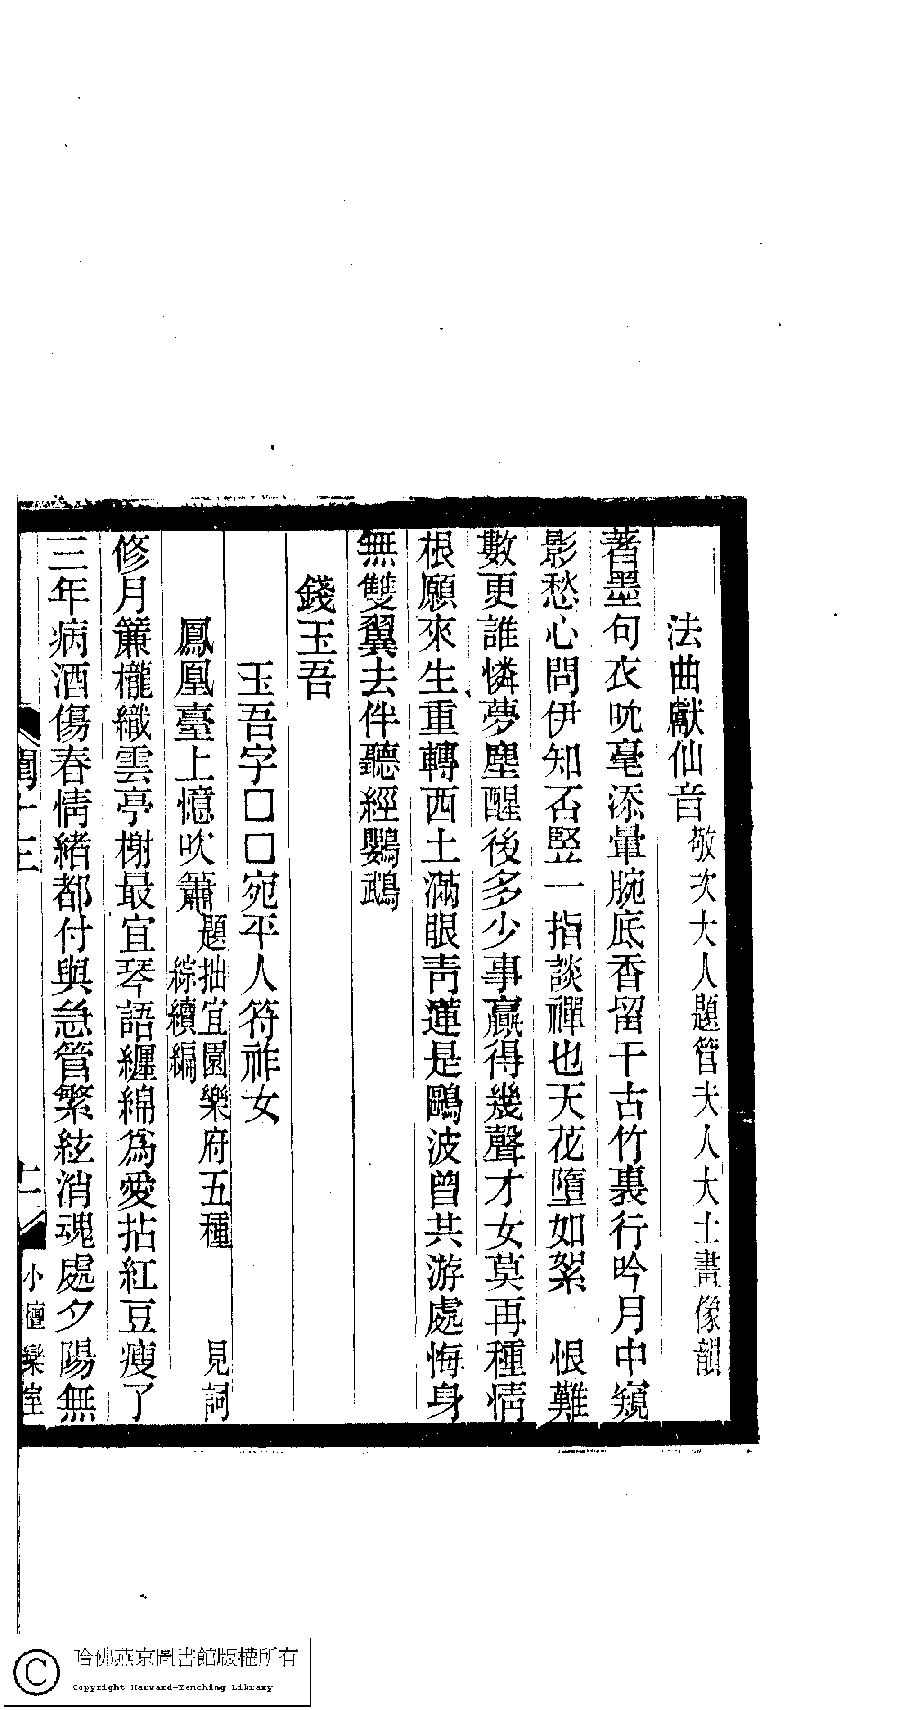 法曲獻仙音敬次大人題管夫人大士畫像韻
著墨句衣吮毫添暈腕底香留千古竹裏行吟月中窺
影愁心問伊知否豎一指談禪也天花墮如絮　恨難
數更誰憐夢塵醒後多少事贏得幾聲才女莫再種情
根願來生重轉西土滿眼靑蓮是鷗波曾共游處悔身
無雙翼去伴聽經鸚鵡
錢玉吾
玉吾字□□宛平人符祚女
鳳凰臺上憶吹簫題拙宜園樂府五種　見詞綜續編
修月簾櫳織雲亭榭最宜琴語纏綿爲愛拈紅豆瘦了
三年病酒傷春情緒都付與急管繁絃消魂處夕陽無
閨十三
十一
小檀欒室
哈佛燕京圖書館版權所有
Copyright Harvard-Yenching Library